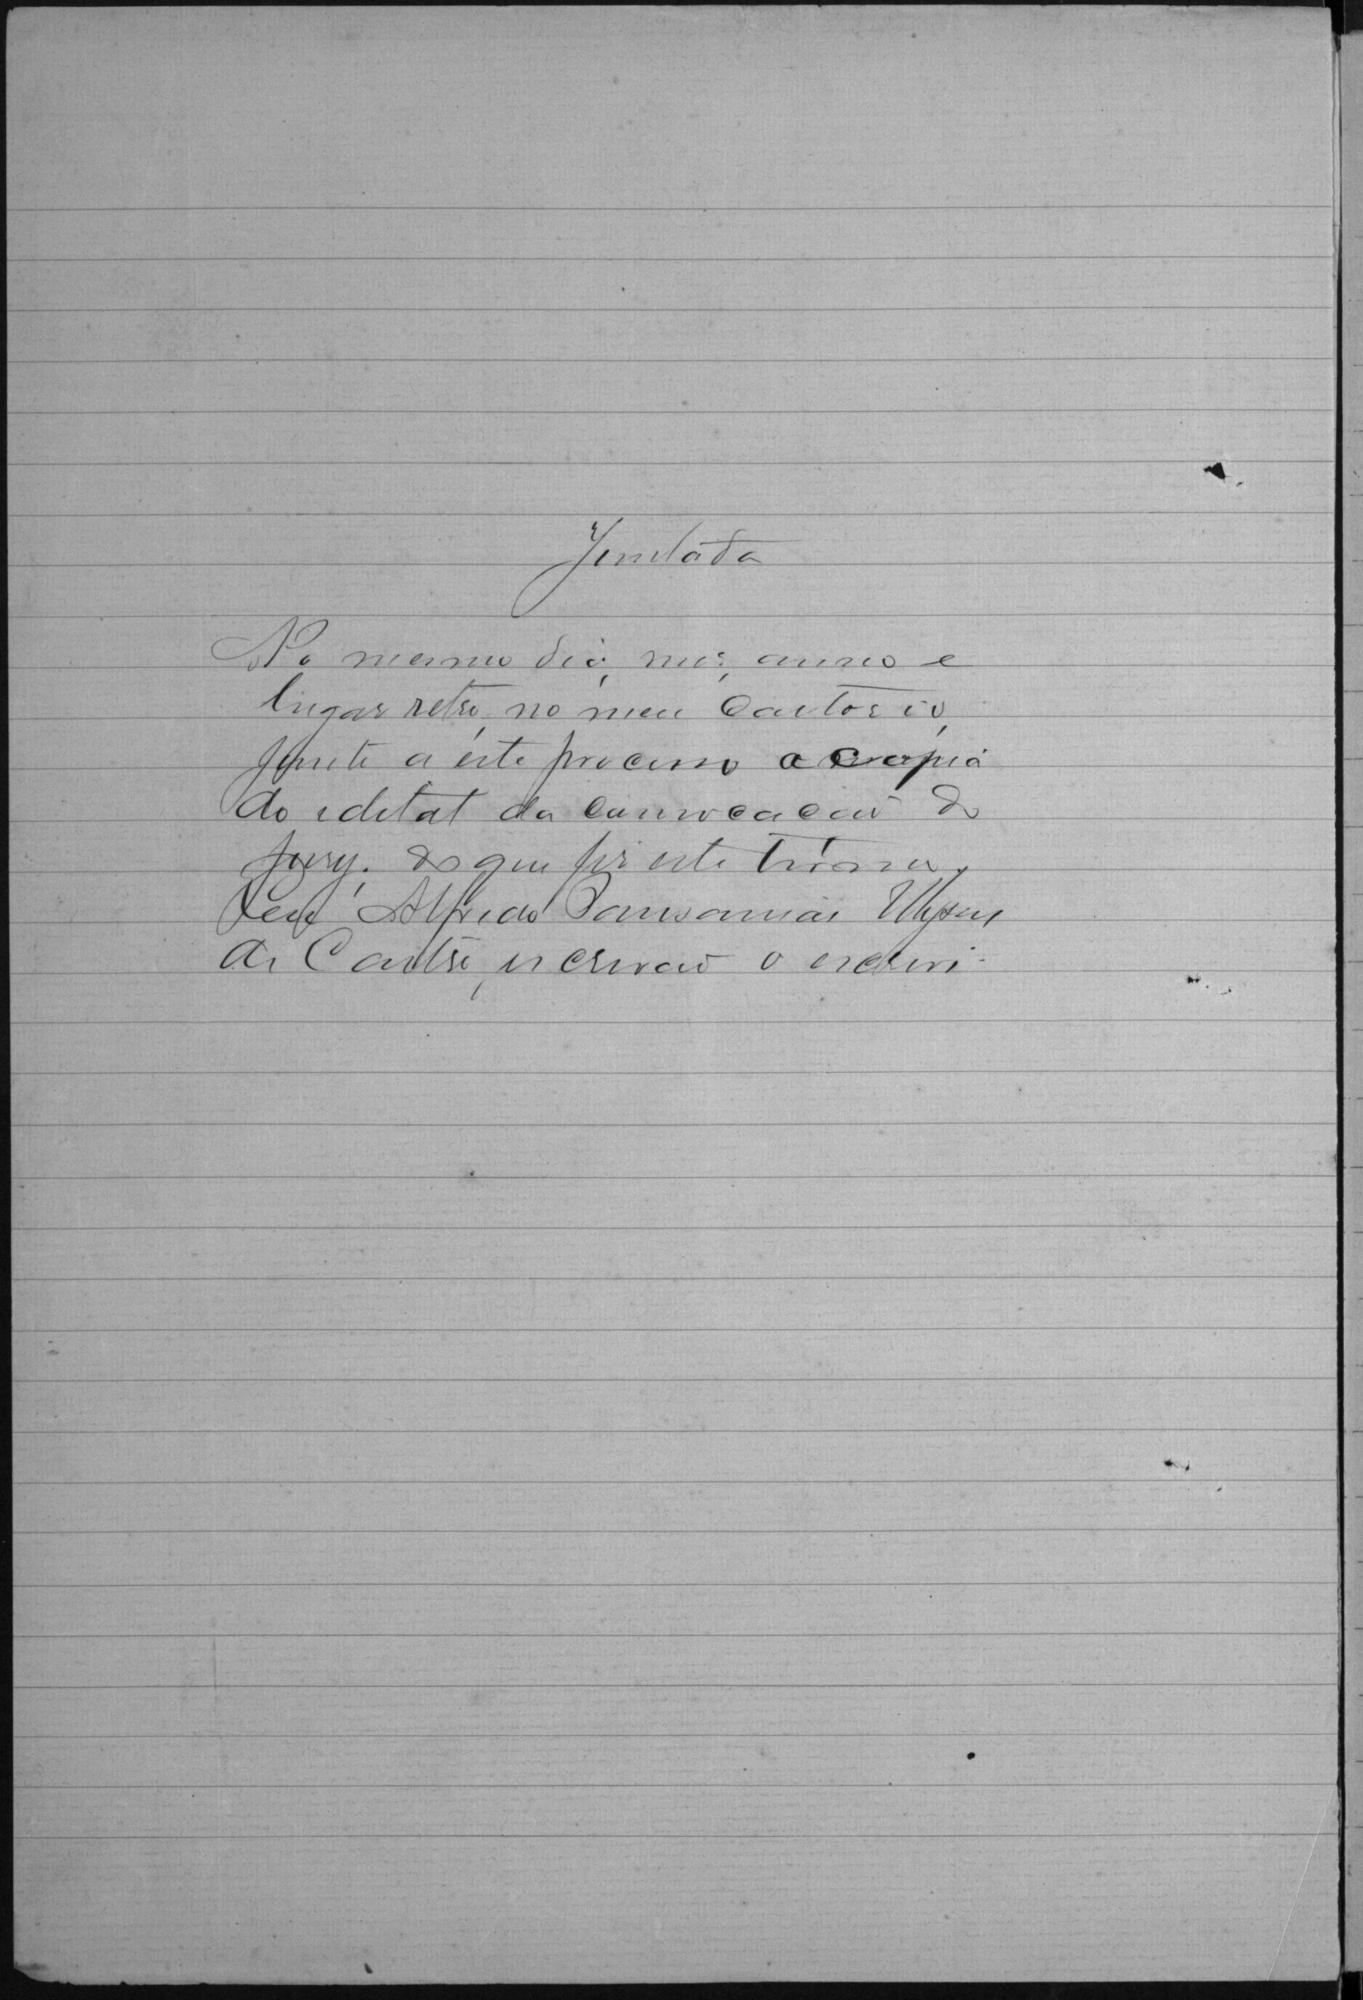 Juntada
No mesmo dia, mes, anno e
lugar retro, no meu Cartorio,
junto a este processo a copia
do edital da convocação do
jury, do que fiz este termo.
Eu, Alfredo Pausanias Ulysses
de Castro, escrivão o escrevi.